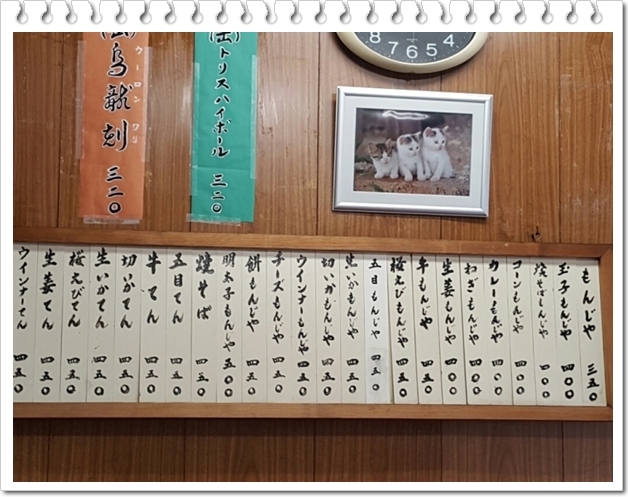 トリスハイボール 三二〇
烏龍割 三二〇
ウーロン ワリ
8 7 6 5 4
もんじゃ 三五〇
玉子もんじゃ 四〇〇
焼そばもんじゃ 四〇〇
コーンもんじゃ 四〇〇
カレーもんじゃ 四〇〇
ねぎもんじゃ 四〇〇
生姜もんじゃ
牛もんじゃ 四五〇
桜えびもんじゃ 四五〇
五目もんじゃ 四五〇
生いかもんじゃ 四五〇
切いかもんじゃ 四五〇
ウインナーもんじゃ 四五〇
チーズもんじゃ 四五〇
餅もんじゃ 四五〇
明太子もんじゃ
焼そば 四五〇
五目てん 四五〇
牛てん 四五〇
切いかてん 四五〇
生いかてん 四五〇
桜えびてん 四五〇
生姜てん 四五〇
ウインナーてん 四五〇